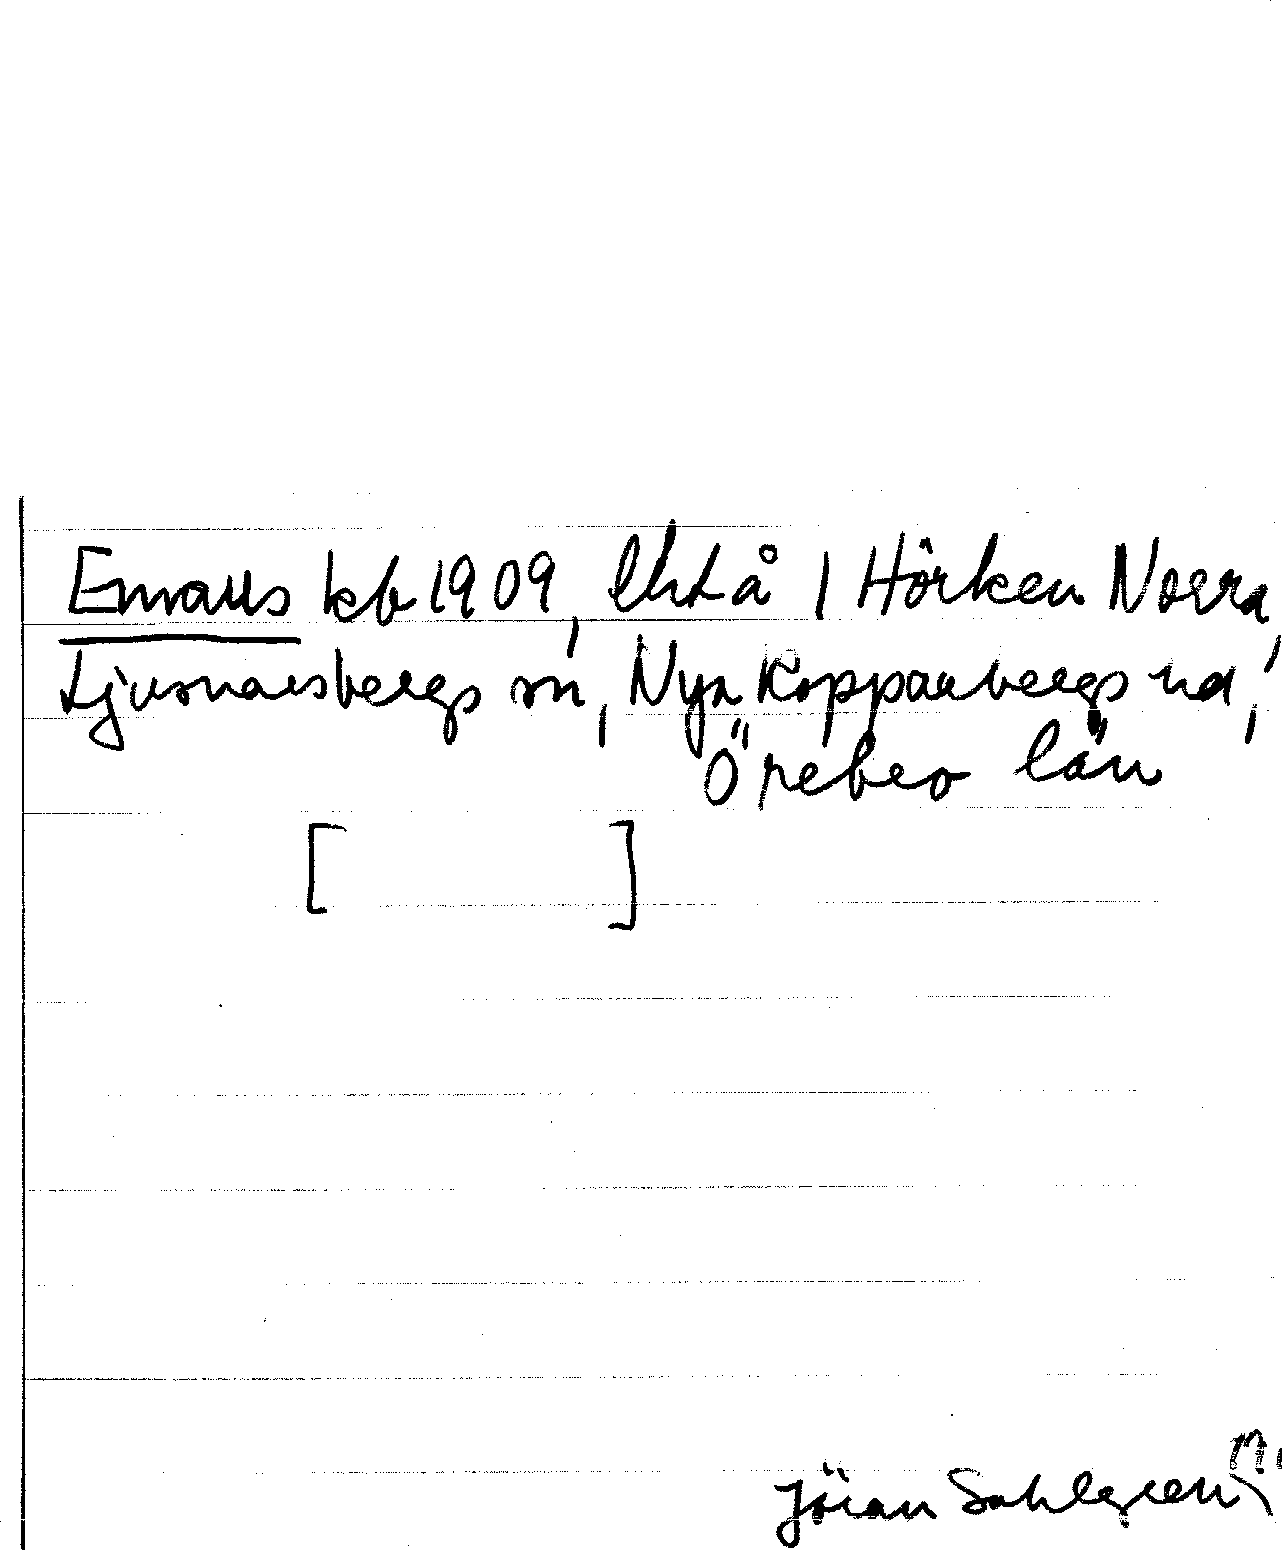 Emaus kb 1909, lht å 1 Hörken Norra,
Ljusnarsbergs sn, Nya Kopparbergs hd,
Örebro län
[ ]
Jöran Sahlgren